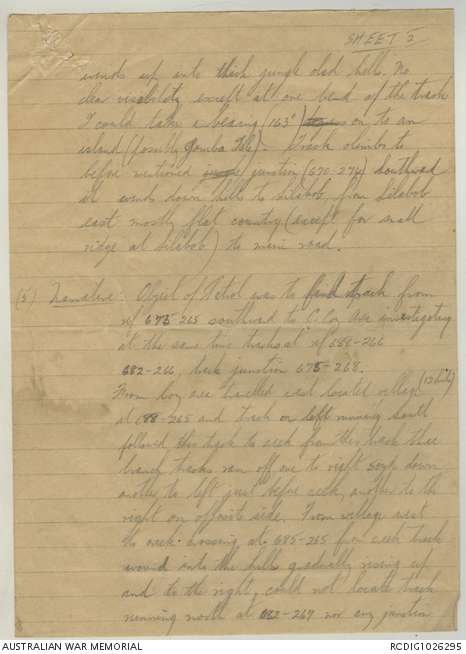 SHEET 2
winds up into thick jungle old hills. No
clear visibility except at one bend of the track
I could take a bearing (163°) on to an
island (possibly Gomba Is). Track climbs to
before mentioned junction (670-274) southward
it winds down hills to Silabob, from Silabob
east mostly flat country (except for small
ridge at Silabob) to main road.
(5) Narrative: Object of Patrol was to find track from
ref 675-265 southward to C. Coy Area investigating
at the same time tracks at ref 688-266
682-266, track junction 675-268.
From Coy area travelled east located village (12 huts)
at 688-265 and track on left running south
followed this track to creek from this track three
branch tracks ran off one to right 50 yds down
another to left just before creek, another to the
right on opposite side. From village west
to creek crossing at 685-265 from creek track
wound into the hills gradually rising up
and to the right, could not locate track
running north at 682-267 nor any junction
AUSTRALIAN WAR MEMORIAL
RCDIG1026295